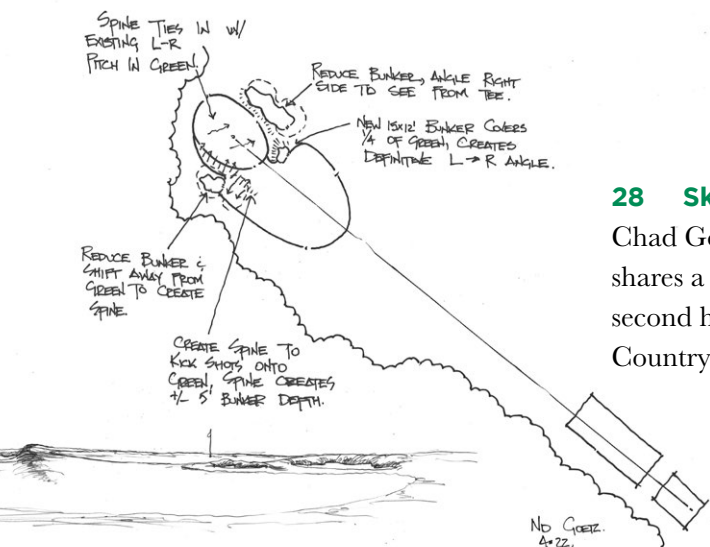 SPINE TIES IN W/
EXISTING L-R
PITCH IN GREEN.
REDUCE BUNKER, ANGLE RIGHT
SIDE TO SEE FROM TEE.
NEW 15x12' BUNKER COVERS
1/4 OF GREEN, CREATES
DEFINITIVE L→R ANGLE.
REDUCE BUNKER &
SHIFT AWAY FROM
GREEN TO CREATE
SPINE.
CREATE SPINE TO
KICK SHOTS ONTO
GREEN, SPINE CREATES
+/- 5' BUNKER DEPTH.
28 Sk
Chad Go
shares a
second h
Country
GOETZ.
4.22.